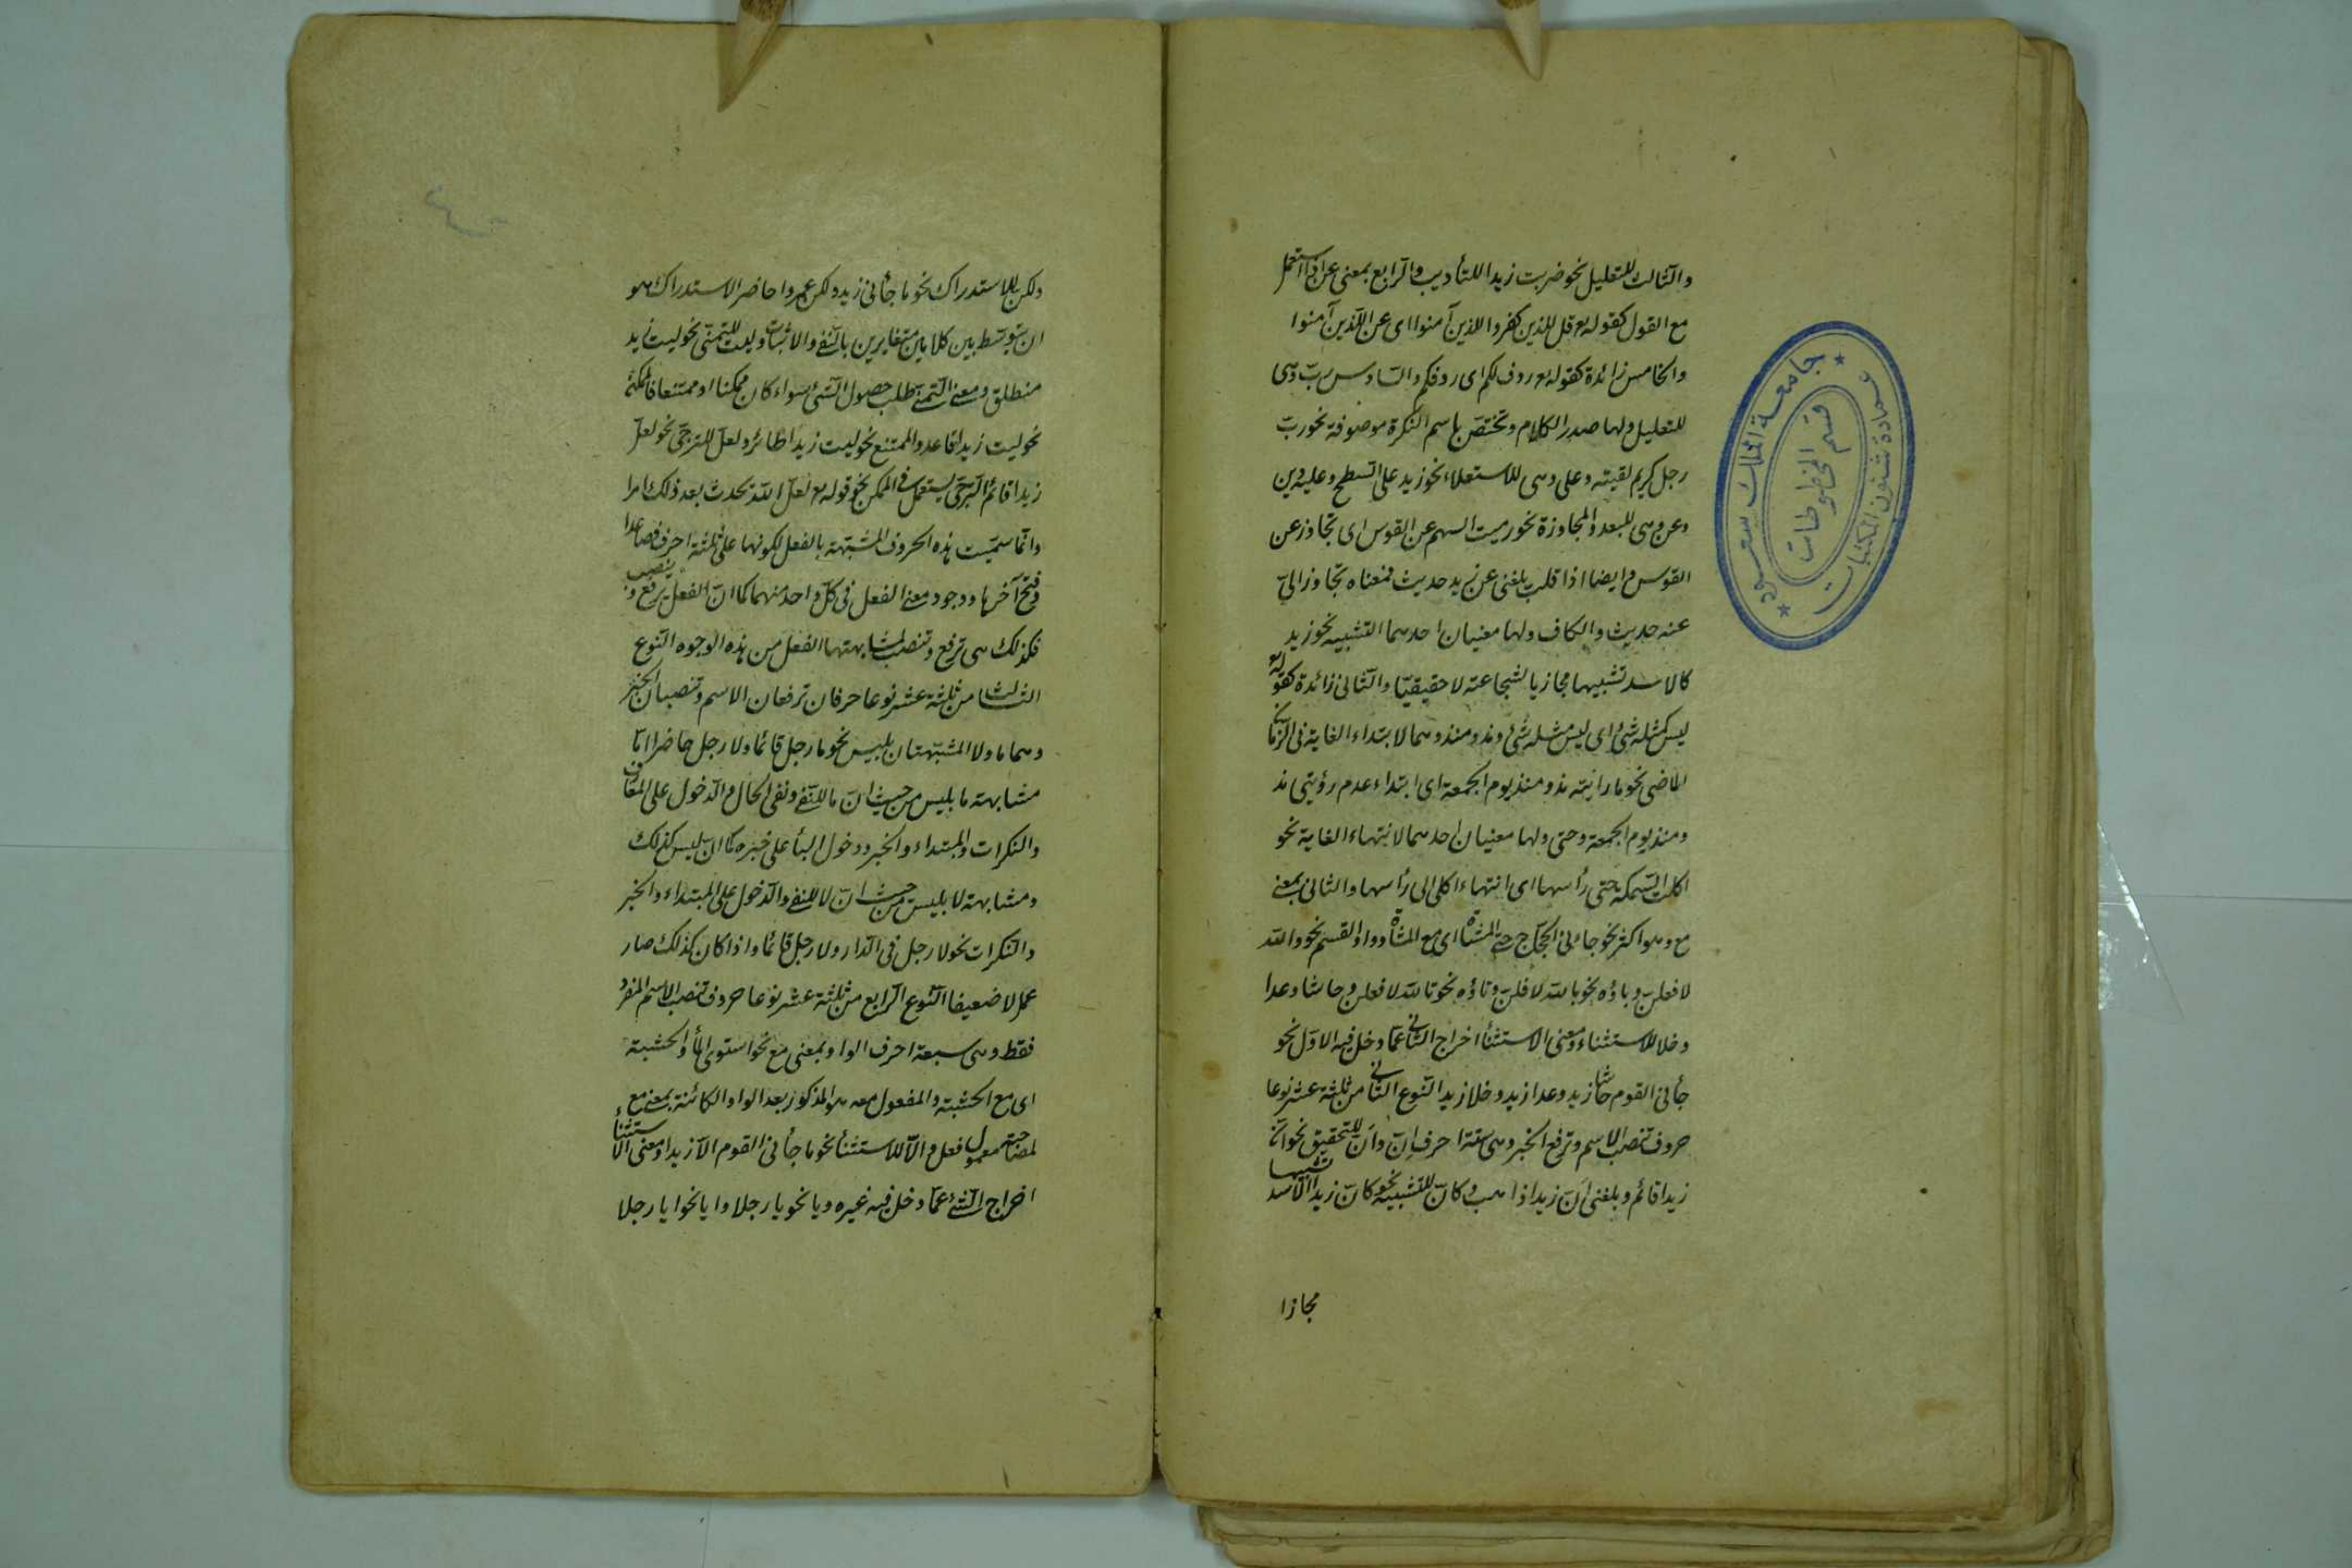 والثالث للتعليل نحو ضربت زيدا للتأديب والرابع بمعنى عن اذا استعمل
مع القول كقوله تع قل للذين كفروا للذين آمنوا اى عن اللذين آمنوا
والخامس زائدة كقوله تع ردف لكم اى ردفكم والسادس رب وهى
للتعليل ولها صدر الكلام وتختص باسم النكرة موصوفة نحو رب
رجل كريم لقيته وعلى وهى للاستعلاء نحو زيد على السطح وعليه دين
وعن وهى للبعد والمجاوزة نحو رميت السهم عن القوس اى تجاوز عن
القوس وايضا اذا قلت بلغنى عن زيد حديث فمعناه تجاوز الىّ
عنه حديث والكاف ولها معنيان احدهما التشبيه نحو زيد
كالاسد تشبيها مجازيا لشجاعته لا حقيقيا والثانى زائدة كقوله
ليس كمثله شئ اى ليس مثله شئ ومذ ومنذ وهما لابتداء الغاية فى الزمان
الماضى نحو ما رايته مذ ومنذ يوم الجمعة اى ابتداء عدم رؤيتى مذ
ومنذ يوم الجمعة وحتى ولها معنيان احدهما لانتهاء الغاية نحو
اكلت السمكة حتى رأسها اى انتهاء اكلى الى رأسها والثانى بمعنى
مع وهو اكثر نحو جاءنى الحجاج حتى المشاة اى مع المشاة وواو القسم نحو والله
لافعلن وباؤه نحو بالله لافلن وتاؤه نحو تالله لافعلن وحاشا وعدا
وخلا للاستثناء ومعنى الاستثنأ اخراج الثانى عما دخل فيه الاول نحو
جأنى القوم حاشا زيد وعدا زيد وخلا زيد النوع الثانى من ثلثة عشر نوعا
حروف تنصب الاسم وترفع الخبر وهى ستة احرف ان وان للتحقيق نحو ان
زيدا قائم وبلغنى ان زيدا ذاهب وكان للتشبيه نحو كان زيدا الاسد تشبيها
مجازا
ولكن للاستدراك نحو ما جأنى زيد ولكن عمروا حاضر الاستدراك هو
ان يتوسط بين كلامين متغايرين بالنفى والاثبات وليت للتمنى نحو ليت زيد
منطلق ومعنى التمنى طلب حصول الشئ سواء كان ممكنا او ممتنعا فالممكن
نحو ليت زيدا قاعد والممتنع نحو ليت زيدا طائر ولعل للترجى نحو لعل
زيدا قائم الترجى يستعمل فى الممكن نحو قوله تع لعل الله يحدث بعد ذلك امرا
وانما سميت هذه الحروف المشبهة بالفعل لكونها على ثلثة احرف فصاعدا
وفتح آخرها ووجود معنى الفعل فى كل واحد منهما كما ان الفعل يرفع وينصب
فكذلك هى ترفع وتنصب لمشابهتها الفعل من هذه الوجوه النوع
الثالث من ثلثة عشر نوعا حرفان ترفعان الاسم وتنصبان الخبر
وهما ما ولا المشبهتان بليس نحو ما رجل قائما ولا رجل حاضرا اما
مشابهة ما بليس من حيث ان ما للنفى ونفى الحال والدخول على المعارف
والنكرات والمبتداء والخبر ودخول البأ على خبره كما ان ليس كذلك
ومشابهة لا بليس من حيث ان لا للنفى والدخول على المبتداء والخبر
والنكرات نحو لا رجل فى الدار ولا رجل قائما واذا كان كذلك صار
عملا ضعيفا النوع الرابع من ثلثة عشر نوعا حروف تنصب الاسم المفرد
فقط وهى سبعة احرف الواو بمعنى مع نحو استوى المأ والخشبة
اى مع الخشبة والمفعول معه هو المذكور بعد الواو الكائنة بمعنى مع
لمصاحبة معمول فعل والا للاستثنأ نحو ما جأنى القوم الا زيدا ومعنى الاستثناء
اخراج الشئ عما دخل فيه غيره ويا نحو يا رجلا وايا نحو ايا رجلا
جامعة الملك سعود
قسم المخطوطات
عمادة شئون المكتبات